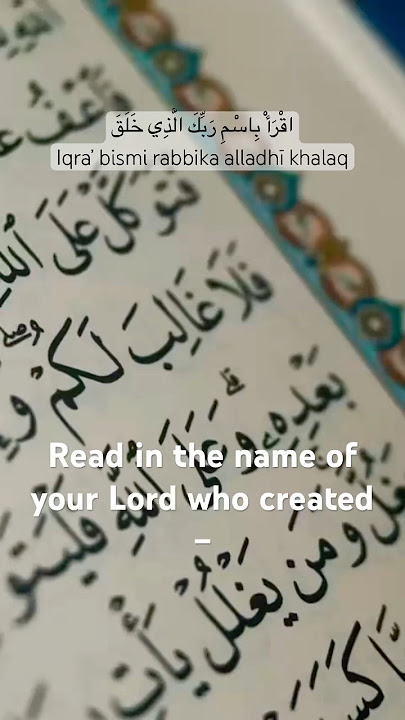 اقْرَأْ بِاسْمِ رَبِّكَ الَّذِي خَلَقَ
Iqra’ bismi rabbika alladhī khalaq
فَٱعْفُ
فَتَوَكَّلْ عَلَى ٱللَّهِ
فَلَا غَالِبَ لَكُمْ
بَعْدِهِۦ وَعَلَى ٱللَّهِ
Read in the name of
your Lord who created
–
وَمَن يَغْلُلْ يَأْتِ